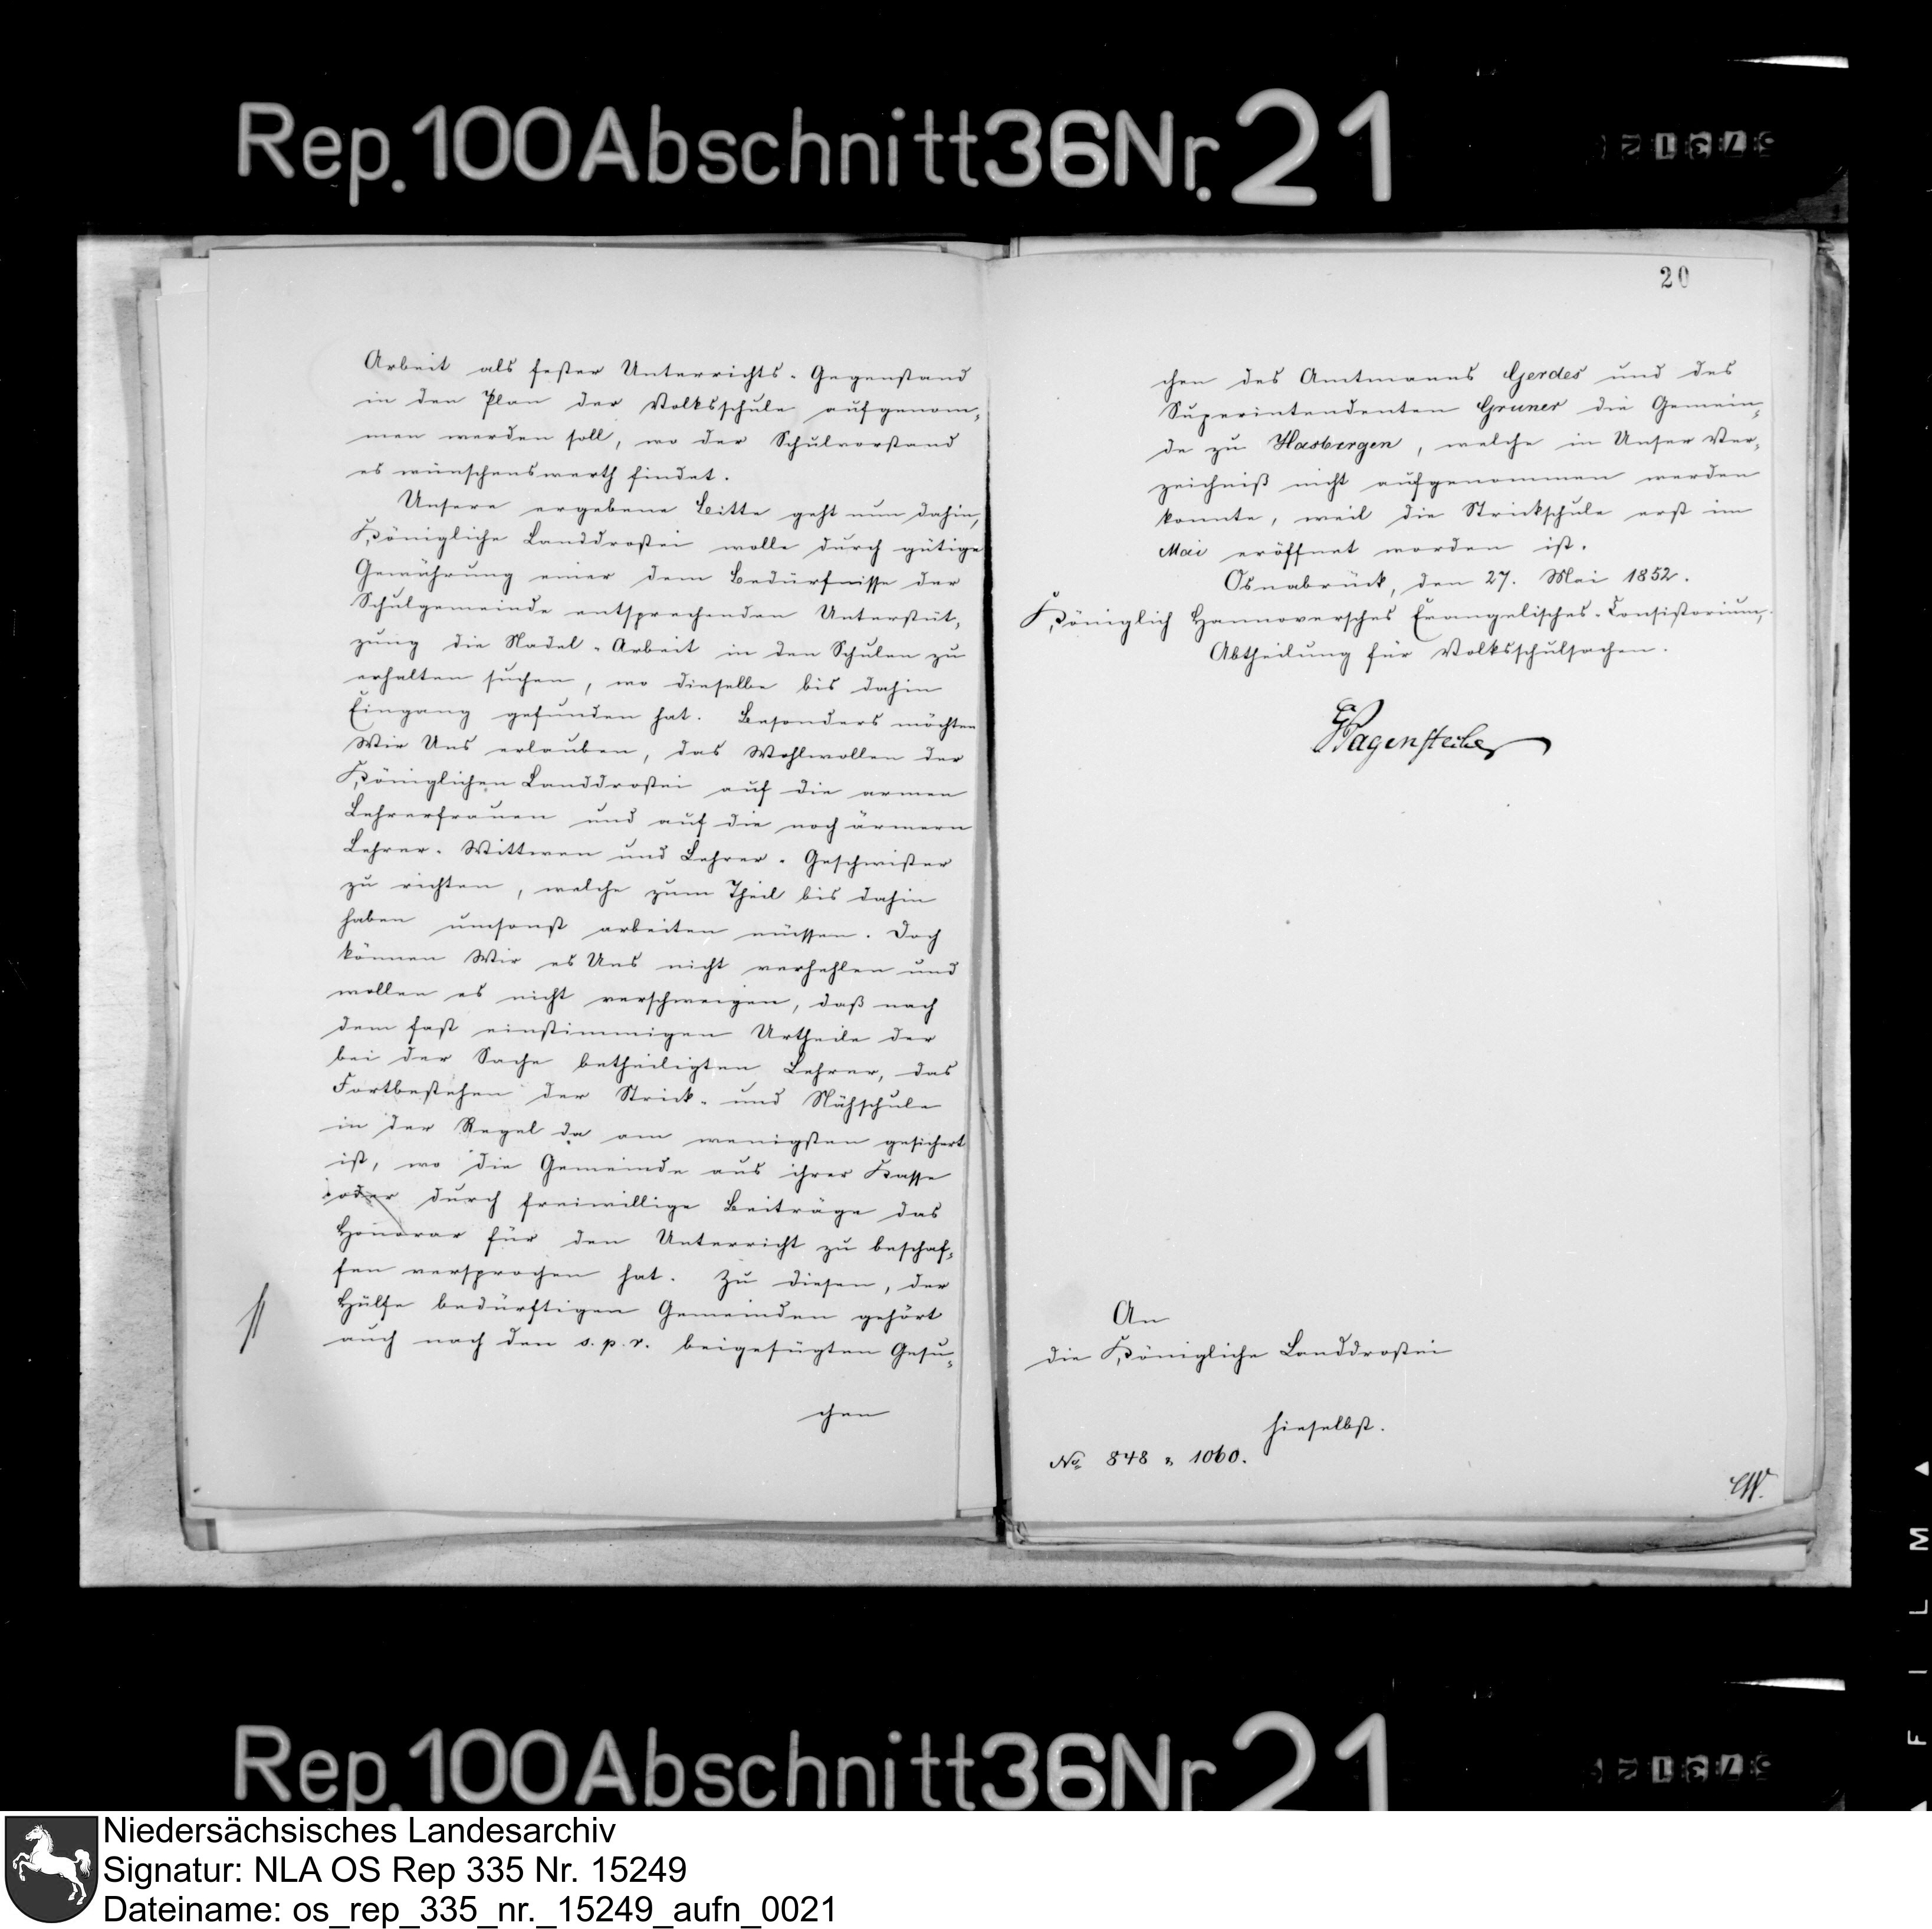 Rep.100Abschnitt36Nr.21
Arbeit als fester Unterrichts-Gegenstand
in den Plan der Volksschule aufgenom-
men werden soll, wo der Schulvorstand
es wünschenswerth findet.
Unsere ergebene Bitte geht nun dahin,
Königliche Landdrostei wolle durch gütige
Gewährung einer dem Bedürfnisse der
Schulgemeinde entsprechenden Unterstüt-
zung die Nadel-Arbeit in den Schulen zu
erhalten suchen, wo dieselbe bis dahin
Eingang gefunden hat. Besonders möchten
Wir Uns erlauben, das Wohlwollen der
Königlichen Landdrostei auf die armen
Lehrerfrauen und auf die noch ärmern
Lehrer-Wittwen und Lehrer-Geschwister
zu richten, welche zum Theil bis dahin
haben umsonst arbeiten müssen. Doch
können Wir es Uns nicht verhehlen und
wollen es nicht verschweigen, daß nach
dem fast einstimmigen Urtheile der
bei der Sache betheiligten Lehrer, das
Fortbestehen der Strick- und Nähschule
in der Regel da am wenigsten gesichert
ist, wo die Gemeinde aus ihrer Kasse
oder durch freiwillige Beiträge das
Honorar für den Unterricht zu beschaf-
fen versprochen hat. Zu diesen, der
Hülfe bedürftigen Gemeinden gehört
auch nach den s.p.r. beigefügten Gesu-
chen
20
chen des Amtmanns Gerdes und des
Superintendenten Gruner die Gemein-
de zu Hasbergen, welche in Unser Ver-
zeichniß nicht aufgenommen werden
konnte, weil die Strickschule erst im
Mai eröffnet worden ist.
Osnabrück, den 27. Mai 1852.
Königlich Hannoversches Evangelisches-Consistorium,
Abtheilung für Volksschulsachen.
Pagenstecher
An
die Königliche Landdrostei
hieselbst.
No 848 & 1060.
CW.
FILM
Rep.100Abschnitt36Nr.21
Niedersächsisches Landesarchiv
Signatur: NLA OS Rep 335 Nr. 15249
Dateiname: os_rep_335_nr._15249_aufn_0021